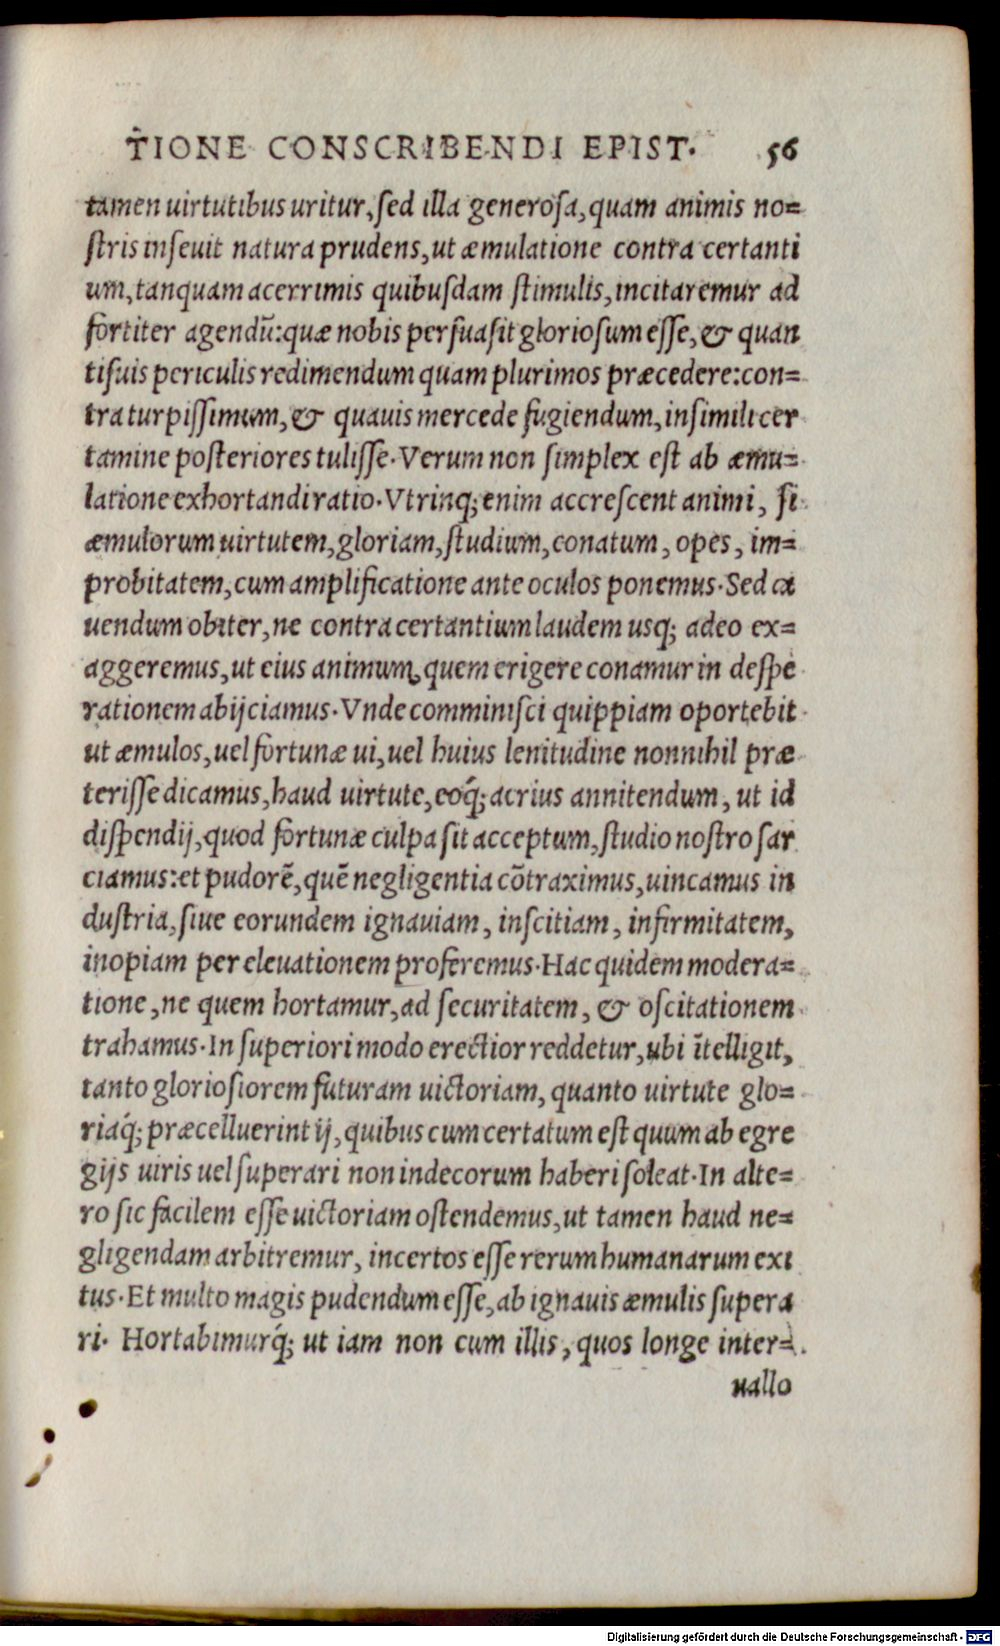 T̃IONE CONSCRIBENDI EPIST. 56
tamen uirtutibus uritur, sed illa generosa, quam animis no=
stris inseuit natura prudens, ut æmulatione contra certanti
um, tanquam acerrimis quibusdam stimulis, incitaremur ad
fortiter agendũ: quæ nobis persuasit gloriosum esse, & quan
tisuis periculis redimendum quam plurimos præcedere: con=
tra turpissimum, & quauis mercede fugiendum, in simili cer
tamine posteriores tulisse. Verum non simplex est ab æmu=
latione exhortandi ratio. Vtrinq; enim accrescent animi, si
æmulorum uirtutem, gloriam, studium, conatum, opes, im=
probitatem, cum amplificatione ante oculos ponemus. Sed ca
uendum obiter, ne contra certantium laudem usq; adeo ex=
aggeremus, ut eius animum, quem erigere conamur in despe
rationem abijciamus. Vnde comminisci quippiam oportebit
ut æmulos, uel fortunæ ui, uel huius lenitudine nonnihil præ
terisse dicamus, haud uirtute, eoq́; acrius annitendum, ut id
dispendij, quod fortunæ culpa sit acceptum, studio nostro sar
ciamus: et pudorẽ, quẽ negligentia cõtraximus, uincamus in
dustria, siue eorundem ignauiam, inscitiam, infirmitatem,
inopiam per eleuationem proferemus. Hac quidem modera=
tione, ne quem hortamur, ad securitatem, & oscitationem
trahamus. In superiori modo erectior reddetur, ubi ĩtelligit,
tanto gloriosiorem futuram uictoriam, quanto uirtute glo=
riaq́; præcelluerint ij, quibus cum certatum est quum ab egre
gijs uiris uel superari non indecorum haberi soleat. In alte=
ro sic facilem esse uictoriam ostendemus, ut tamen haud ne=
gligendam arbitremur, incertos esse rerum humanarum exi
tus. Et multo magis pudendum esse, ab ignauis æmulis supera
ri. Hortabimurq́; ut iam non cum illis, quos longe inter=
uallo
Digitalisierung gefördert durch die Deutsche Forschungsgemeinschaft - DFG